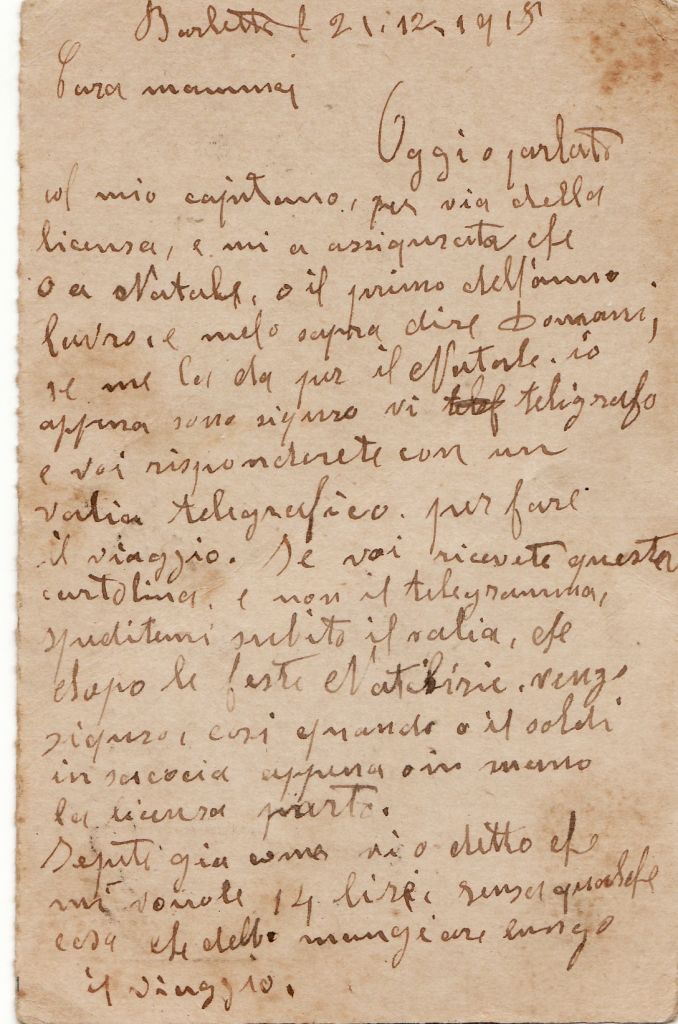 Barletta 21.12.1915
Cara mamma
Oggi o parlato
col mio capitano, per via della
licensa, e mi a assigurata che
o a Natale, o il primo dell'anno
lavro, e melo sapra dire Domani,
se me la da per il Natale. io
appena sono siguro vi teligrafo
e voi risponderete con un
valia telegrafico. per fare
il viaggio. Se voi ricevete questa
cartolina, e non il telegramma,
spuditemi subito il valia, che
dopo le feste Natilizie, vengo
siguro, cosi quando o il soldi
in saccocia appena o in mano
la licensa parto.
Sepute gia come vi o detto che
mi vonole 14 lire, sensa qualche
cosa che debbo mangiare lungo
il viaggio.